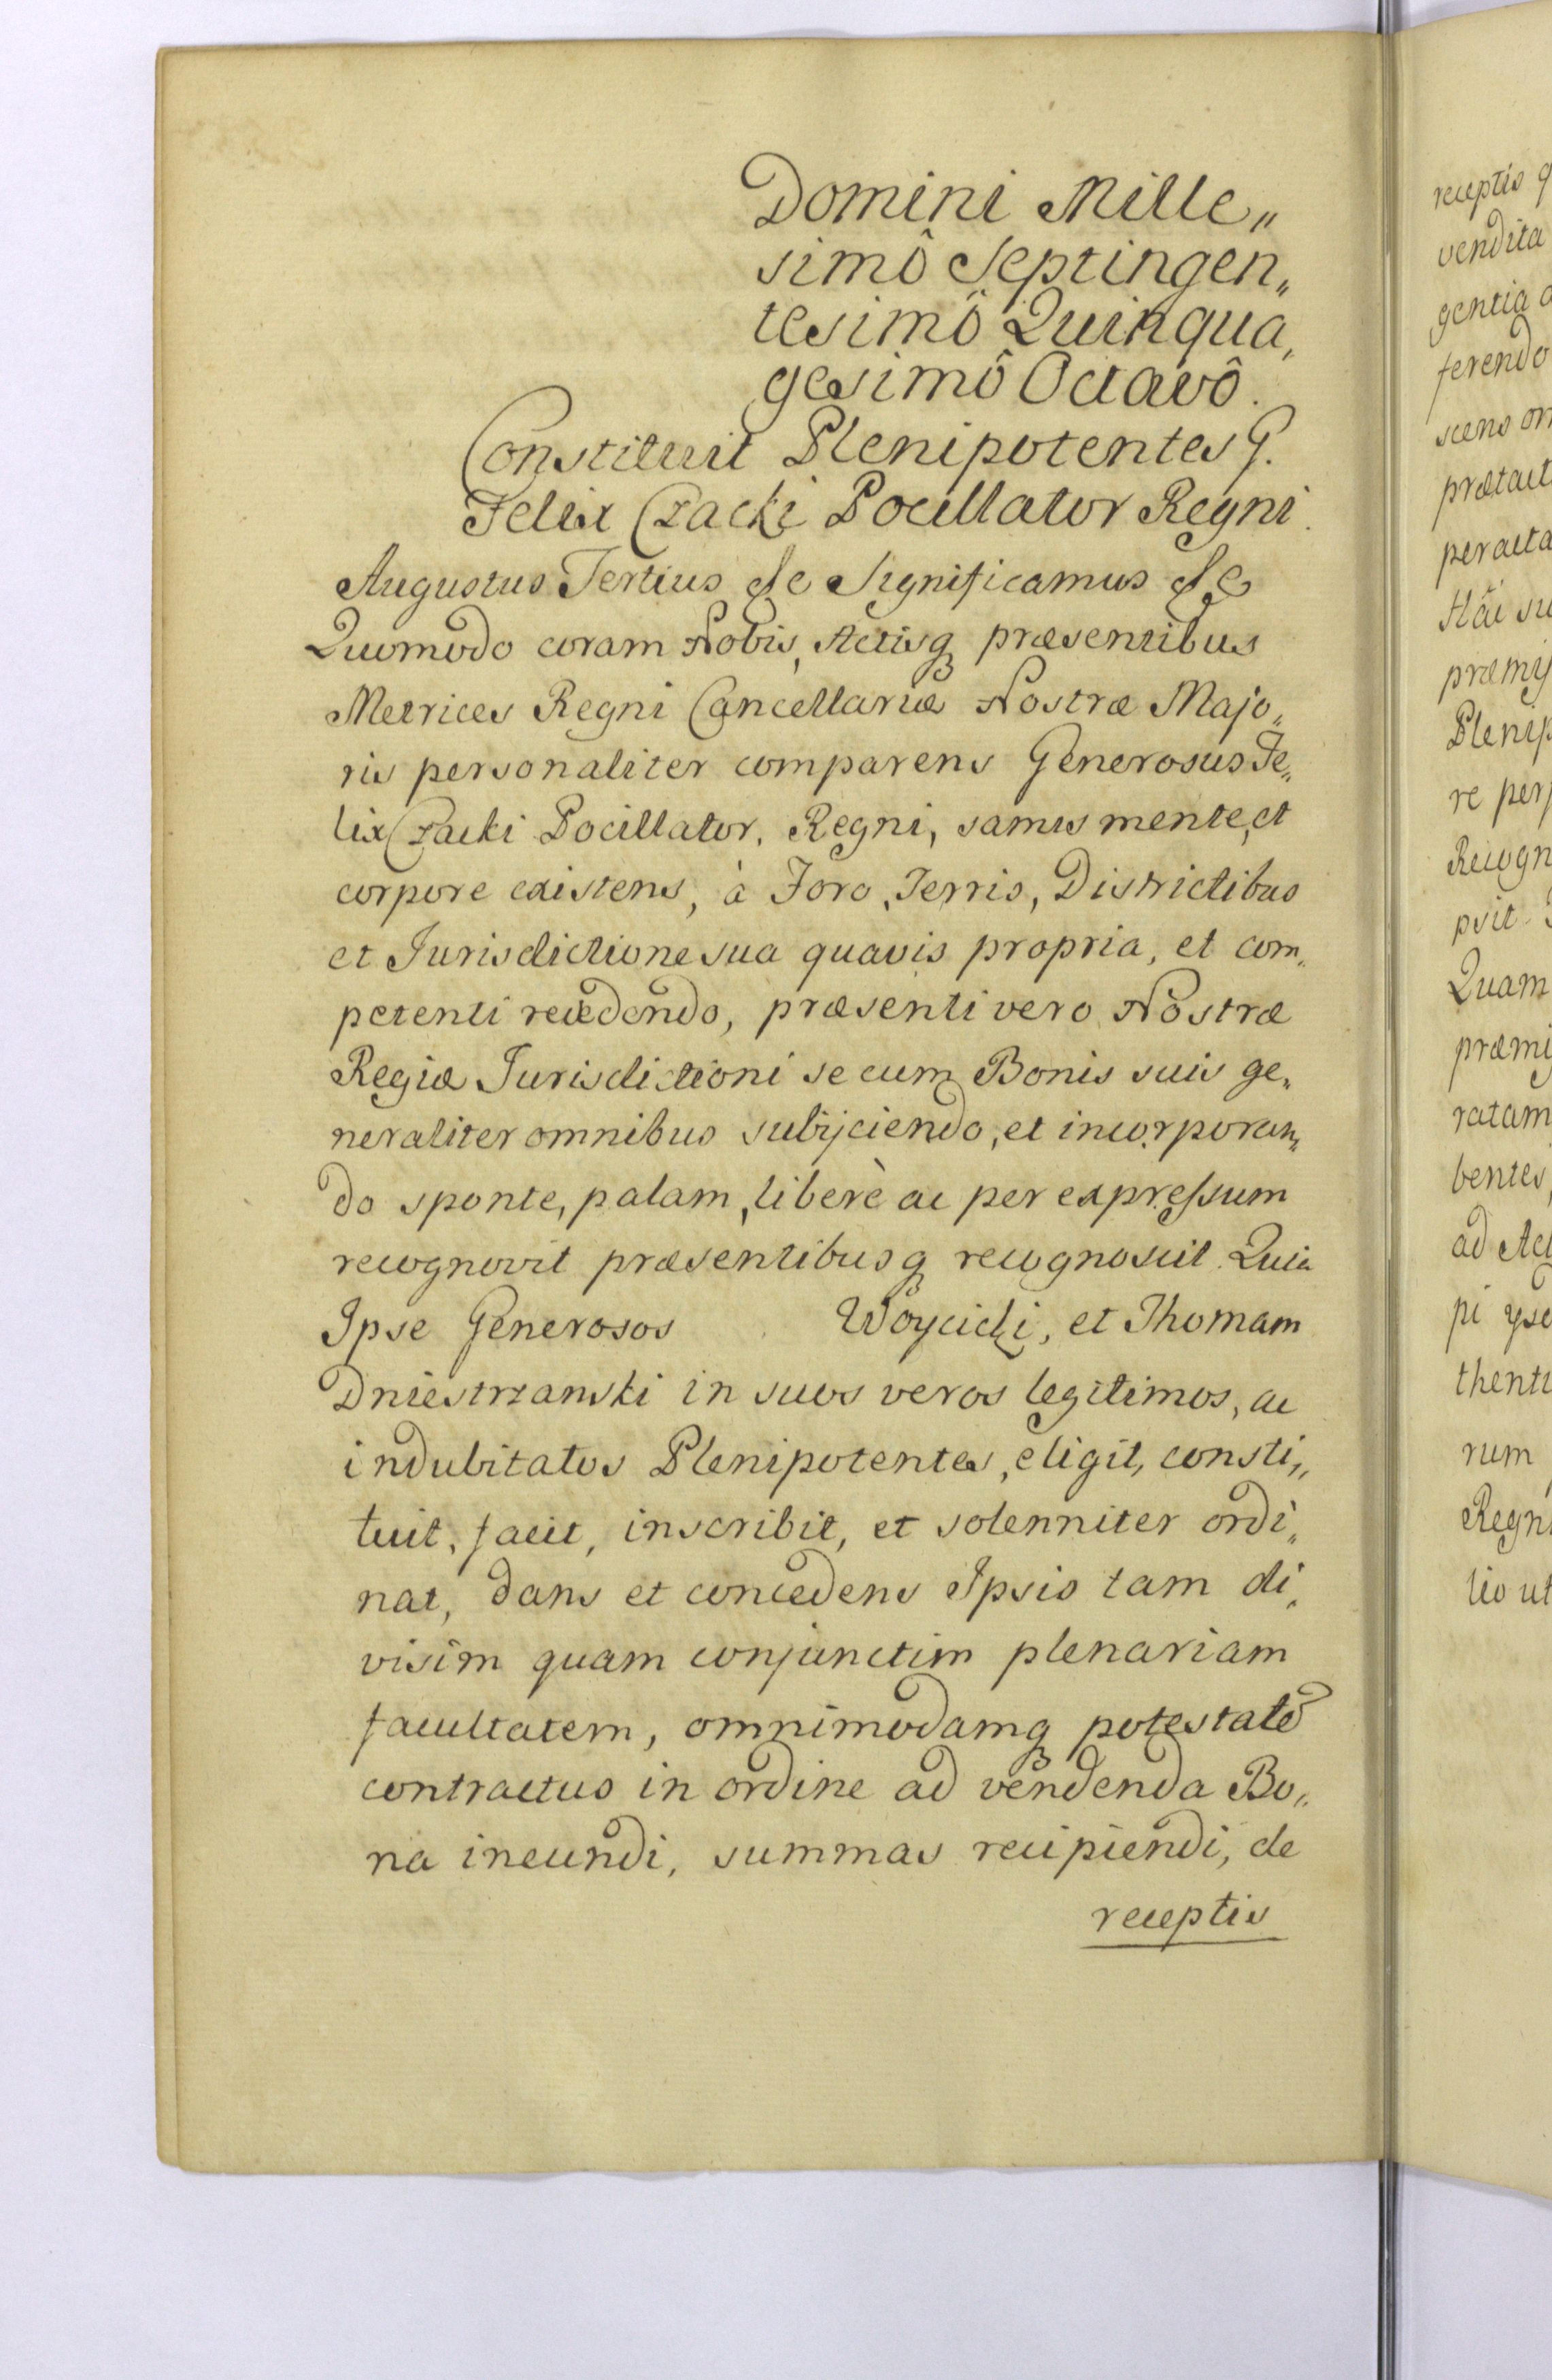 Domini Mille„
simô Septingen„
tesimô Quinqua„
gesimô Octavô.
Constituit Plenipotentes G.
Felix Czacki Pocillator Regni.
Augustus Tertius &c Significamus &c
Quomodo coram Nobis, Actisq præsentibus
Metrices Regni Cancellariæ Nostræ Majo„
ris personaliter comparens Generosus Fe„
lix Czacki Pocillator, Regni, sanus mente, et
corpore existens, à Foro, Terris, Districtibus
et Jurisdictione sua quavis propria, et com„
petenti recedendo, præsenti vero Nostræ
Regiæ Jurisdictioni se cum Bonis suis ge„
neraliter omnibus subijciendo, et incorporan„
do sponte, palam, liberè ac per expressum
recognovit præsentibusq recognoscit. Quia
Ipse Generosos Woycicki, et Thomam
Dniestrzanski in suos veros legitimos, ac
indubitatos Plenipotentes, eligit, consti„
tuit, facit, inscribit, et solenniter ordi„
nat, dans et concedens Ipsis tam di„
visim quam conjunctim plenariam
facultatem, omnimodamq potestatē
contractus in ordine ad vendenda Bo„
na ineundi, summas recipiendi, de
receptis
receptis
vendita
gentia
ferendo
scens
peracta
Plenip
re
Recogn
Quam
præmi
ratam
bentes,
ad Act
pi
thenti
rum
Regni